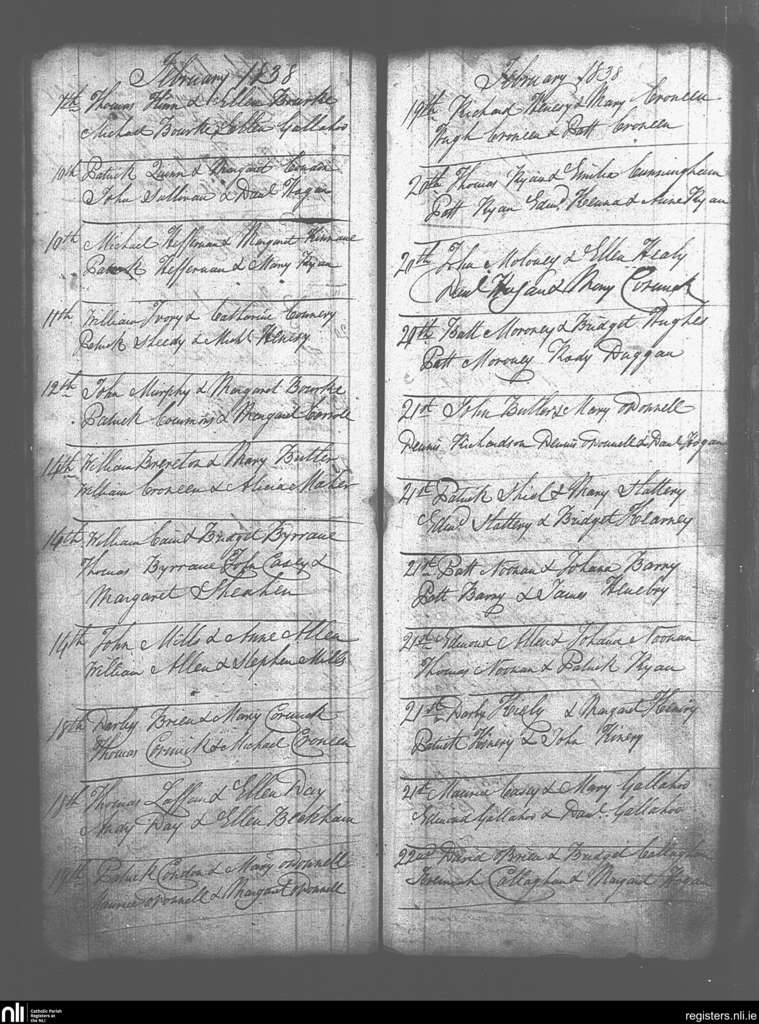 February 1838
7th Thomas Finn & Ellen Bourke
Michael Bourke & Ellen Gallaho
10th Patrick Quinn & Margaret Condon
John Sullivan & Danl Hogan
10th Michael Heffernan & Margaret Kinnane
Patrick Heffernan & Mary Ryan
11th William Ivory & Catherine Counery
Patrick Sheedy & Michl Henery
12th John Murphy & Margaret Bourke
Patrick & Margaret Carrole
14th William Brereton & Mary Butler
William Croneen & Alicia Maher
14th William Cain & Bridget Byrrane
Thomas Byrrane John Casey &
Margaret Sheahen
14th John Mills & Anne Allen
William Allen & Stephen Mills
18th Darby Brien & Mary Cormick
Thomas Cormick & Michael Croneen
18th Thomas Laffan & Ellen Day
Andy Day & Ellen Beakham
19th Patrick Condon & Mary ODonnell
Maurice ODonnell & Margaret ODonnell
February 1838
19th Richard Henesy & Mary Croneen
Hugh Croneen & Patt Croneen
20th Thomas Ryan & Emilia Cunningham
Patt Ryan Edmd Kenna & Anne Ryan
20th John Moloney & Ellen Healy
Danl Hogan & Mary Cormick
20th Batt Moroney & Bridget Hughes
Patt Moroney Rody Duggan
21st John Butler & Mary ODonnell
Dennis Richardson Dennis ODonnell & Danl Hogan
21st Patrick Shiel & Mary Slattery
Edmd Slattery & Bridget Kearney
21st Patt Noonan & Johana Barry
Patt Barry & James Henebry
21st Edmond Allen & Johana Noonan
Thomas Noonan & Patrick Ryan
21st Darby Hiely & Margaret Heniry
Patrick Hinery & John Hinery
21st Maurice Casey & Mary Gallaho
Edmond Gallaho & Danl Gallaho
22nd David OBrien & Bridget Callaghan
Jeremiah Callaghan & Margaret Hogan
nli Catholic Parish Registers at the NLI
registers.nli.ie